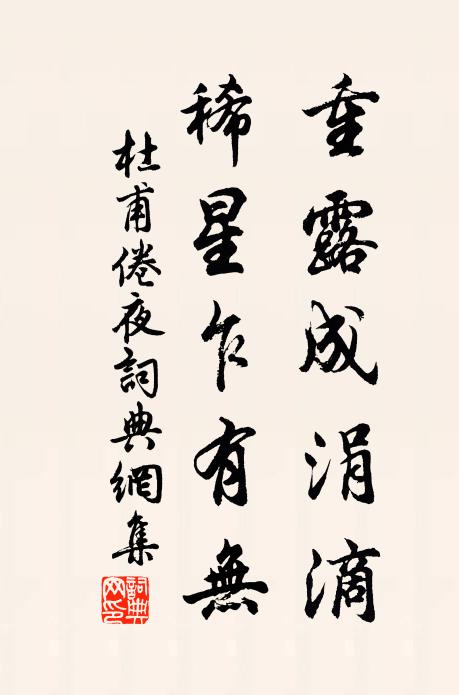 重露成涓滴
稀星乍有無
杜甫倦夜詞典網集
詞典網印